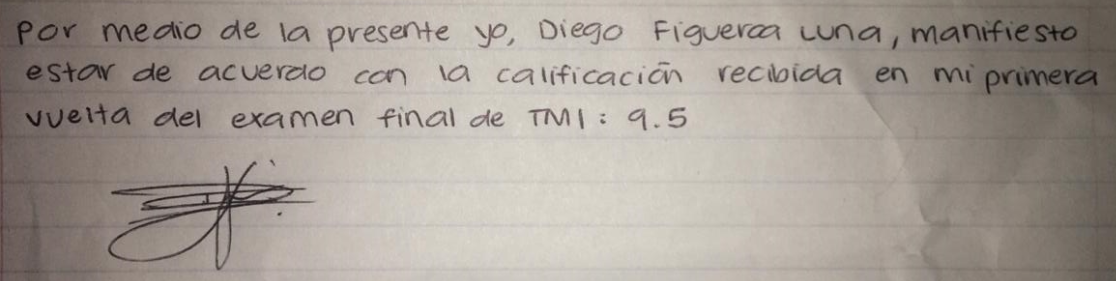 Por medio de la presente yo, Diego Figueroa Luna, manifiesto
estar de acuerdo con la calificación recibida en mi primera
vuelta del examen final de TMI: 9.5